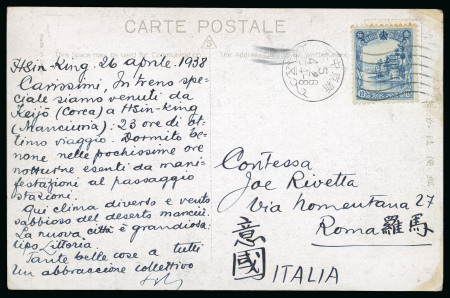 CARTE POSTALE
This Space may be used for Communication
The Address to be written here
Hsin-King. 26 aprile. 1938
Carissimi, In treno spe-
ciale siamo venuti da
Keijo (Corea) a Hsin-King
(Manciuria): 23 ore di ot-
timo viaggio. Dormito be-
none nelle pochissime ore
notturne esenti da mani-
festazioni al passaggio
stazioni.
Qui clima diverso e vento
sabbioso del deserto manciù.
La nuova città è grandiosa:
tipo Littoria.
Tante belle cose a tutti
Un abbraccione collettivo
Contessa
Joe Rivetta
Via Nomentana 27
Roma 羅馬
意國
ITALIA